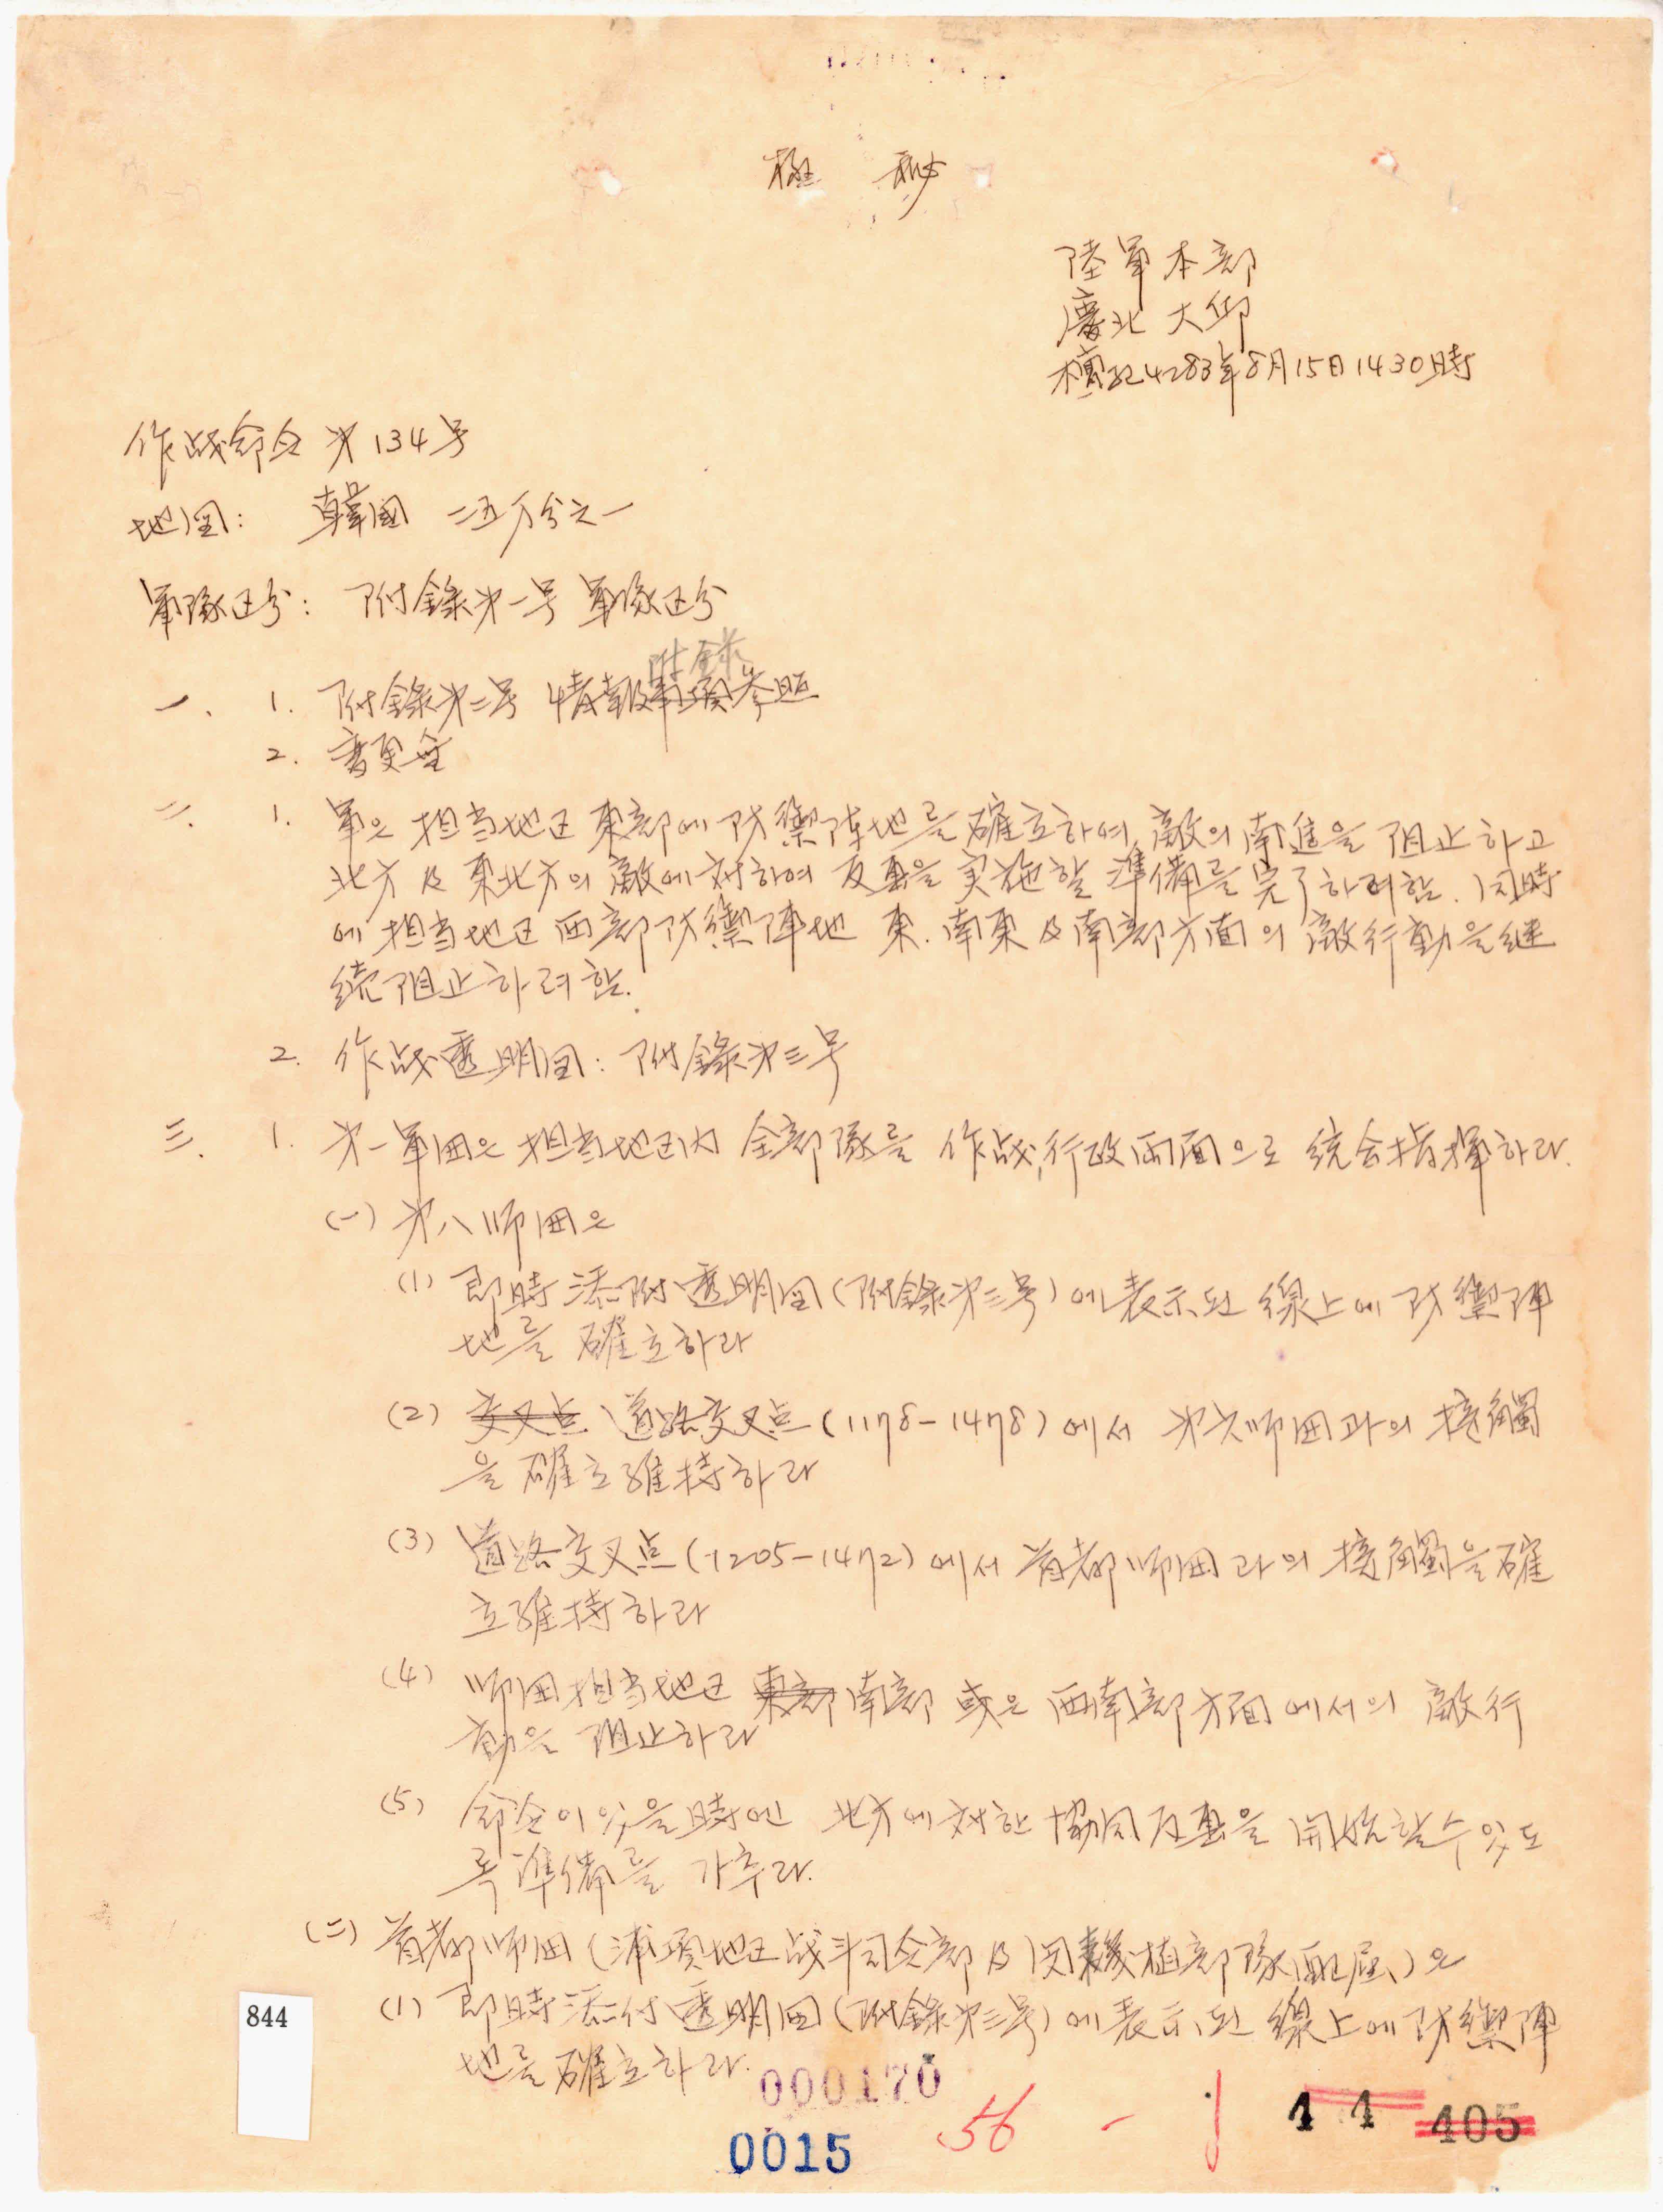 極 秘
陸軍本部
慶北 大邱
檀紀4283年8月15日1430時
作战命令 㐧134号
地図: 韓國 二五万分之一
軍隊区分: 附錄㐧一号 軍隊区分
附錄
一、 1. 附錄㐧二号 情報事項参照
2. 変更無
二. 1. 軍은 担当地区 東部에 防禦陣地를 確立하여 敵의 南進을 阻止하고
北方 及 東北方의 敵에 対하여 反擊을 実施할 準備를 完了하려함. 同時
에 担当地区 西部防禦陣地 東.南東 及 南部方面의 敵行動을 継
続阻止하려함.
2. 作战透明図: 附錄㐧三号
三. 1. 㐧一軍団은 担当地区内 全部隊를 作战,行政両面으로 統合指揮하라.
(一) 㐧八师団은
(1) 即時添附透明図(附錄㐧三号)에 表示된 線上에 防禦陣
地를 確立하라
(2) 交叉点 道路交叉点(1178-1478)에서 㐧六师団과의 接觸
을 確立維持하라
(3) 道路交叉点(1205-1472)에서 首都师団과의 接觸을 確
立維持하라
(4) 师団担当地区 東部南部 或은 西南部方面에서의 敵行
動을 阻止하라
(5) 命令이 있을 時엔 北方에 対한 協同反擊을 開始할수있도
록 準備를 가추라.
(二) 首都师団(浦項地区战斗司令部 及 閔機植部隊配属)은
(1) 即時添付透明図(附錄㐧三号)에 表示된 線上에 防禦陣
地를 確立하라.
844
000170
0015
56 - 1
1 1 405